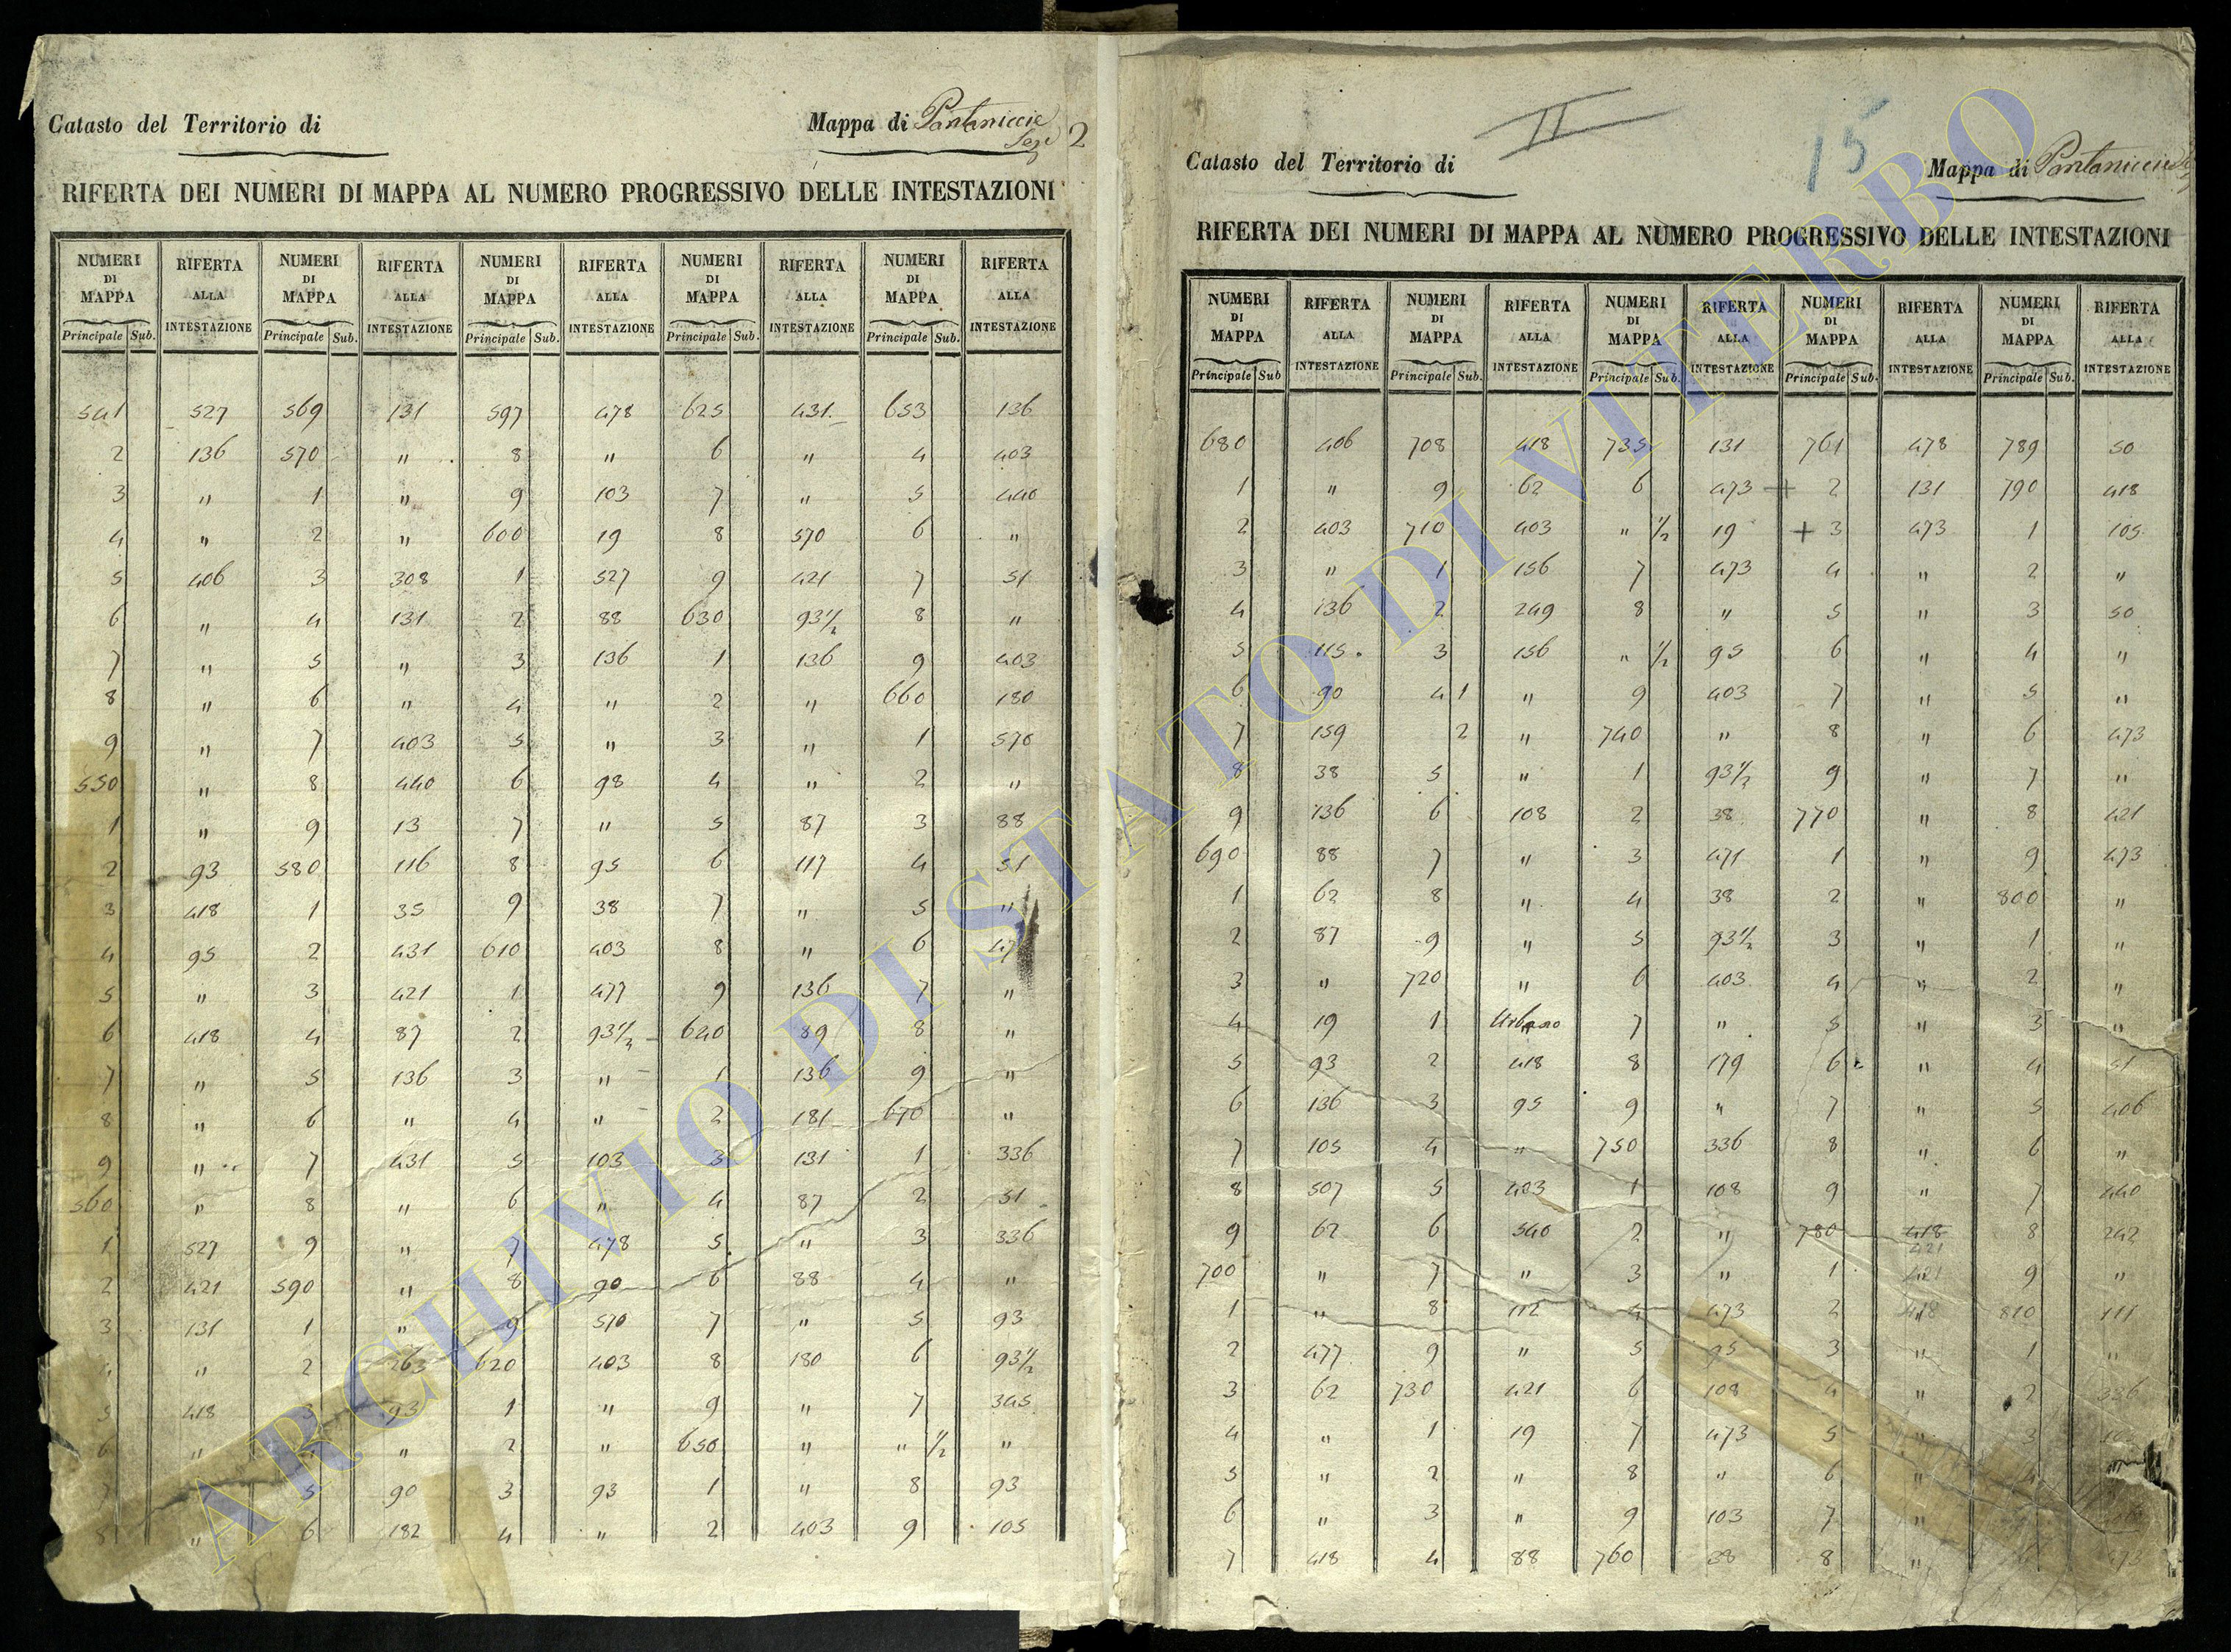 Catasto del Territorio di Mappa di Pantaniccie
Sez 2
RIFERTA DEI NUMERI DI MAPPA AL NUMERO PROGRESSIVO DELLE INTESTAZIONI
NUMERI RIFERTA NUMERI RIFERTA NUMERI RIFERTA NUMERI RIFERTA NUMERI RIFERTA
DI ALLA DI ALLA DI ALLA DI ALLA DI ALLA
MAPPA INTESTAZIONE MAPPA INTESTAZIONE MAPPA INTESTAZIONE MAPPA INTESTAZIONE MAPPA INTESTAZIONE
Principale Sub. Principale Sub. Principale Sub. Principale Sub. Principale Sub.
541 527 569 131 597 478 625 431 653 136
2 136 570 " 8 " 6 " 4 403
3 " 1 " 9 103 7 " 5 440
4 " 2 " 600 19 8 570 6 "
5 406 3 308 1 527 9 421 7 51
6 " 4 131 2 88 630 93 1/2 8 "
7 " 5 " 3 136 1 136 9 403
8 " 6 " 4 " 2 " 660 180
9 " 7 403 5 " 3 " 1 570
550 " 8 440 6 98 4 " 2 "
1 " 9 13 7 " 5 87 3 88
2 93 580 116 8 95 6 117 4 51
3 418 1 35 9 38 7 " 5 "
4 95 2 431 610 403 8 " 6
5 " 3 421 1 477 9 136 7 "
6 418 4 87 2 93 1/2 640 89 8 "
7 " 5 136 3 " 1 136 9 "
8 " 6 " 4 " 2 181 670 "
9 " 7 431 5 103 3 131 1 336
560 " 8 " 6 " 4 87 2 51
1 527 9 " 7 478 5 " 3 336
2 421 590 " 8 90 6 88 4 "
3 131 1 " 9 570 7 " 5 93
4 " 2 263 620 403 8 180 6 93 1/2
5 418 3 93 1 " 9 " 7 345
6 " " 2 " 650 " " 1/2 "
7 " 5 90 3 93 1 " 8 93
8 " 6 182 4 " 2 403 9 105
II
15
Catasto del Territorio di Mappa di Pantaniccie
RIFERTA DEI NUMERI DI MAPPA AL NUMERO PROGRESSIVO DELLE INTESTAZIONI
NUMERI RIFERTA NUMERI RIFERTA NUMERI RIFERTA NUMERI RIFERTA NUMERI RIFERTA
DI ALLA DI ALLA DI ALLA DI ALLA DI ALLA
MAPPA INTESTAZIONE MAPPA INTESTAZIONE MAPPA INTESTAZIONE MAPPA INTESTAZIONE MAPPA INTESTAZIONE
Principale Sub Principale Sub. Principale Sub. Principale Sub. Principale Sub.
680 406 708 418 735 131 761 478 789 50
1 " 9 62 6 473 + 2 131 790 418
2 403 710 403 " 1/2 19 + 3 473 1 105
3 " 1 156 7 473 4 " 2 "
4 136 2 249 8 " 5 " 3 50
5 115 3 156 " 1/2 95 6 " 4 "
6 90 4 1 " 9 403 7 " 5 "
7 159 2 " 740 " 8 " 6 473
8 38 5 " 1 93 1/2 9 " 7 "
9 136 6 108 2 38 770 " 8 421
690 88 7 " 3 471 1 " 9 473
1 62 8 " 4 38 2 " 800 "
2 87 9 " 5 93 1/2 3 " 1 "
3 " 720 " 6 403 4 " 2 "
4 19 1 Urbano 7 " 5 " 3 "
5 93 2 418 8 179 6 " 4 51
6 136 3 95 9 " 7 " 5 406
7 105 4 " 750 336 8 " 6 "
8 507 5 403 1 108 9 " 7 440
9 62 6 540 2 " 780 418 8 242
421
700 " 7 " 3 " 1 421 9 "
1 " 8 112 4 473 2 418 810 111
2 477 9 " 5 95 3 " 1 "
3 62 730 421 6 108 4 " 2 336
4 " 1 19 7 473 5 " 3
5 " 2 " 8 " 6 " 4
6 " 3 " 9 103 7 "
7 418 4 88 760 38 8 "
ARCHIVIO DI STATO DI VITERBO